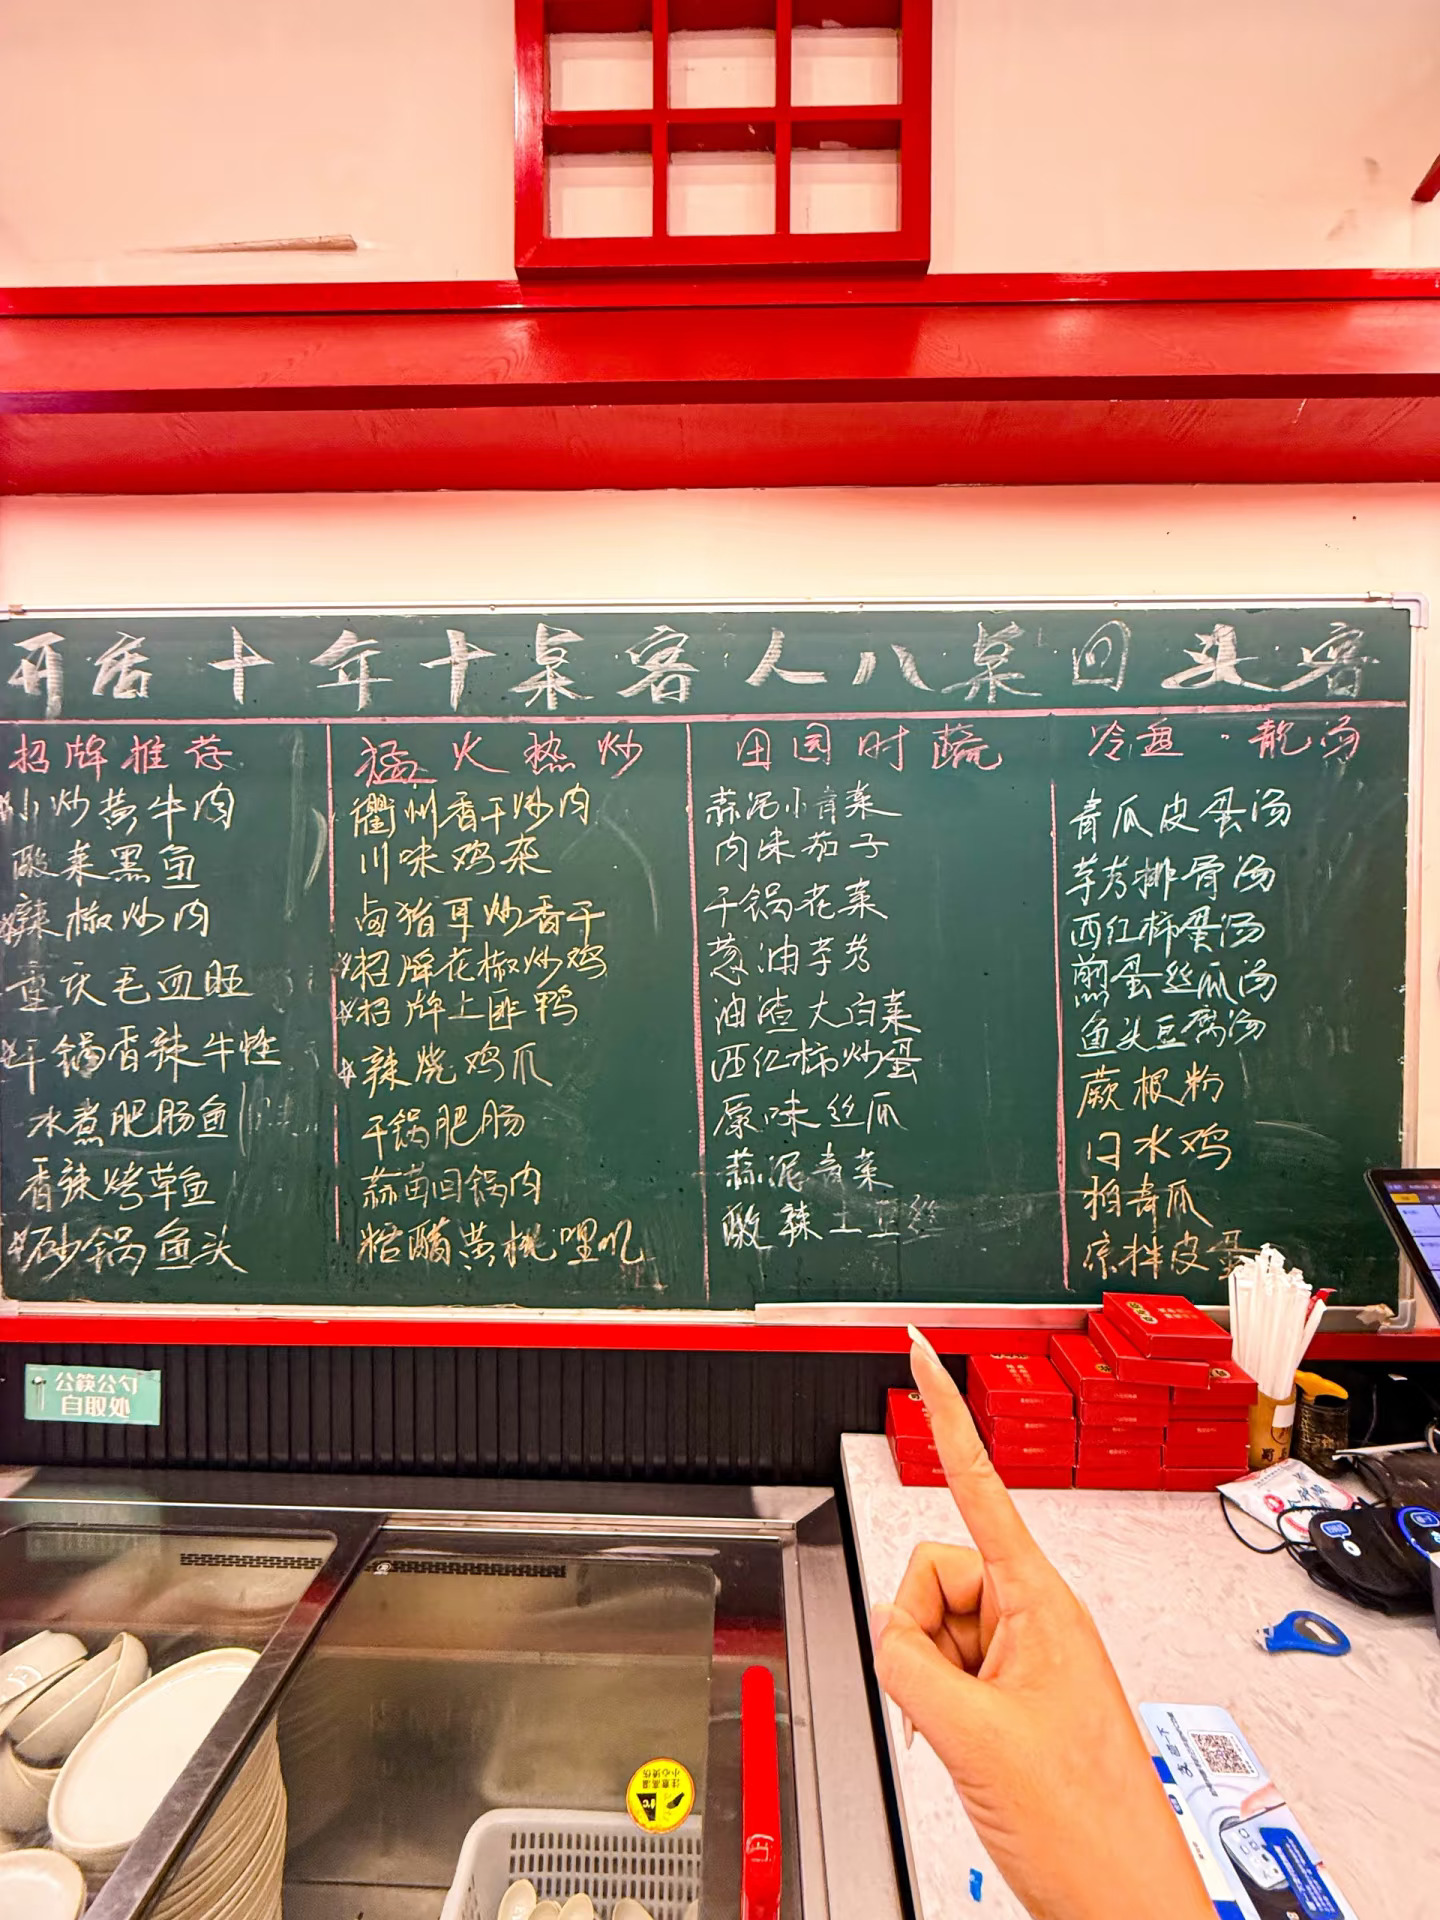 开店十年十桌客人八桌回头客
招牌推荐
*小炒黄牛肉
酸菜黑鱼
*辣椒炒肉
重庆毛血旺
*干锅香辣牛蛙
水煮肥肠鱼
香辣烤草鱼
*砂锅鱼头
猛火热炒
衢州香干炒肉
川味鸡杂
卤猪耳炒香干
*招牌花椒炒鸡
*招牌上匪鸭
*辣烧鸡爪
干锅肥肠
蒜苗回锅肉
糖醋黄桃哩叽
田园时蔬
蒜泥小青菜
肉沫茄子
干锅花菜
葱油芋艿
油渣大白菜
西红柿炒蛋
原味丝瓜
蒜泥青菜
酸辣土豆丝
冷盘·靓汤
青瓜皮蛋汤
芋艿排骨汤
西红柿蛋汤
煎蛋丝瓜汤
鱼头豆腐汤
蕨根粉
口水鸡
拍青瓜
凉拌皮蛋
公筷公勺
自取处
注意高温
小心烫伤